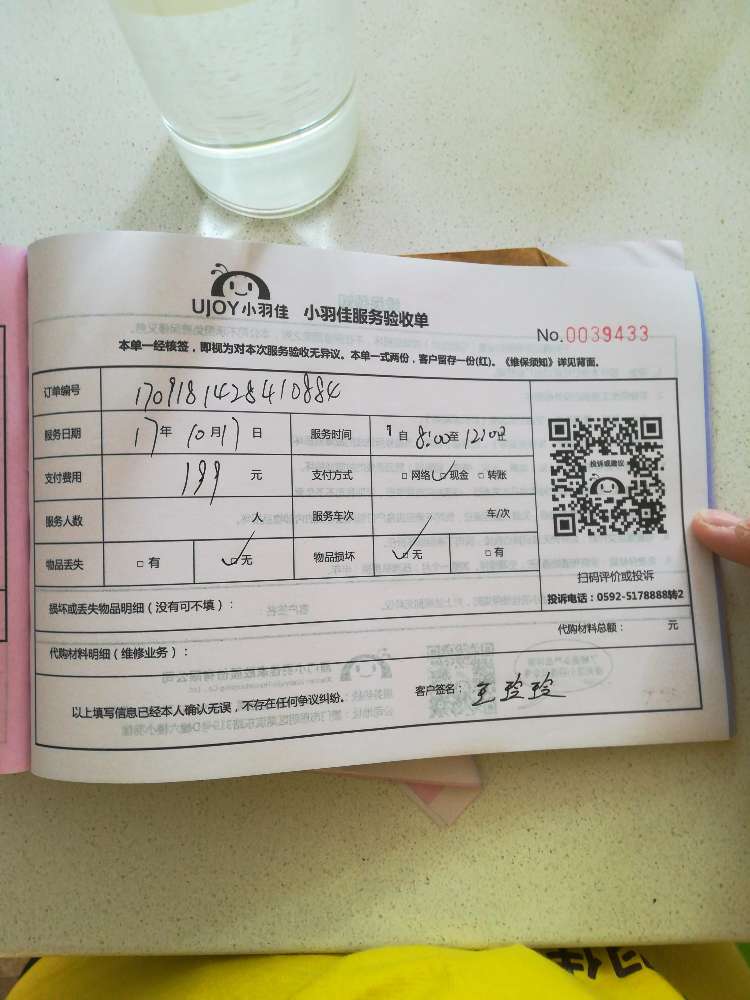 UJOY小羽佳 小羽佳服务验收单
No.0039433
本单一经核签，即视为对本次服务验收无异议。本单一式两份，客户留存一份(红)。《维保须知》详见背面。
订单编号 1709181428410884
服务日期 17年10月17日 服务时间 自8:00至12:00止
支付费用 199元 支付方式 □网络 □现金 □转账
服务人数 人 服务车次 车/次
物品丢失 □有 □无 物品损坏 □无 □有
投诉或建议
扫码评价或投诉
投诉电话：0592-5178888转2
损坏或丢失物品明细（没有可不填）：
代购材料总额： 元
代购材料明细（维修业务）：
客户签名：王玲玲
以上填写信息已经本人确认无误，不存在任何争议纠纷。